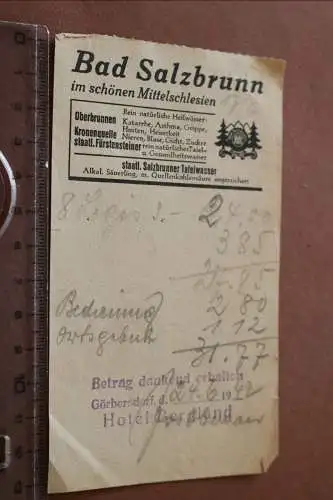 Bad Salzbrunn
im schönen Mittelschlesien
Oberbrunnen
Rein natürliche Heilwässer:
Katarrhe, Asthma, Grippe,
Husten, Heiserkeit
Kronenquelle
Nieren, Blase, Gicht, Zucker
staatl. Fürstensteiner
rein natürliches Tafel-
u. Gesundheitswasser
staatl. Salzbrunner Tafelwasser
Alkal. Säuerling, m. Quellenkohlensäure angereichert
8 3.- 24.00
3 85
Bedienung 2 80
Ortsgebühr 1 12
31.77
Betrag dankend erhalten
Görbersdorf, d. 24.6 1942
Hotel Bergland